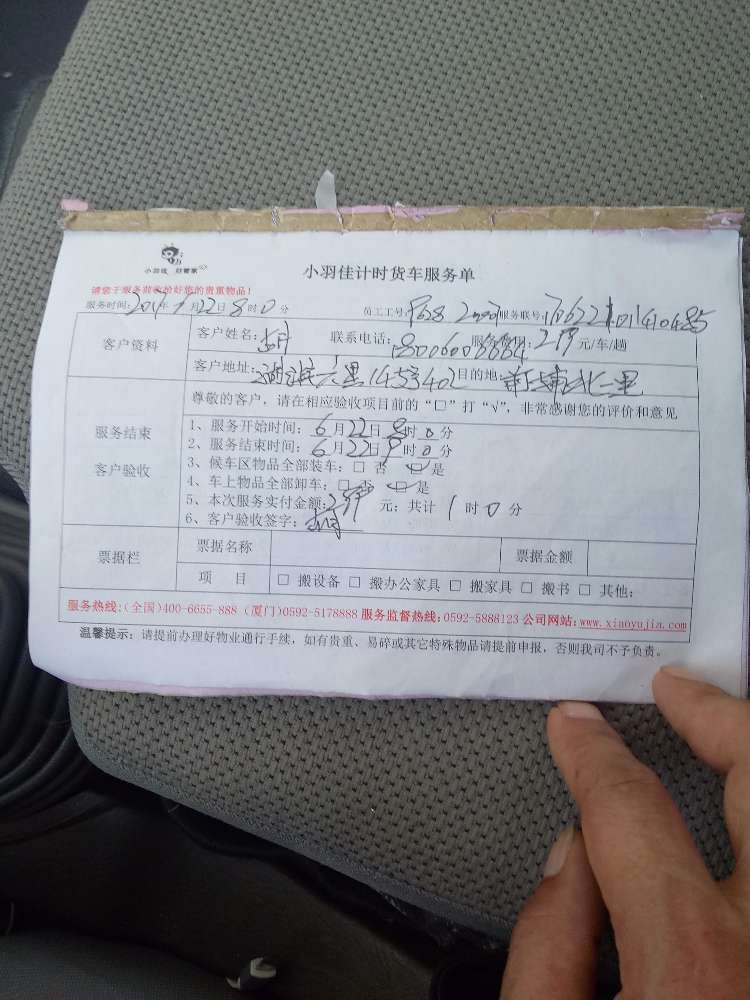 小羽佳 好管家
小羽佳计时货车服务单
请您于服务前收拾好您的贵重物品!
服务时间: 年 月22日8时0分 员工工号: 服务联号:
客户资料 客户姓名: 联系电话:18006006664 服务费用: 元/车/趟
客户地址: 六里 目的地: 北二里
服务结束 客户验收
尊敬的客户,请在相应验收项目前的“□”打“√”,非常感谢您的评价和意见
1、服务开始时间:6月22日8时0分
2、服务结束时间:6月22日9时0分
3、候车区物品全部装车:□ 否 ☑ 是
4、车上物品全部卸车:□ 否 ☑ 是
5、本次服务实付金额: 元;共计 1 时 0 分
6、客户验收签字:
票据栏 票据名称 票据金额
项 目 □ 搬设备 □ 搬办公家具 □ 搬家具 □ 搬书 □ 其他:
服务热线:(全国)400-6655-888 (厦门)0592-5178888 服务监督热线:0592-5888123 公司网站:www.xiaoyujia.com
温馨提示:请提前办理好物业通行手续,如有贵重、易碎或其它特殊物品请提前申报,否则我司不予负责。